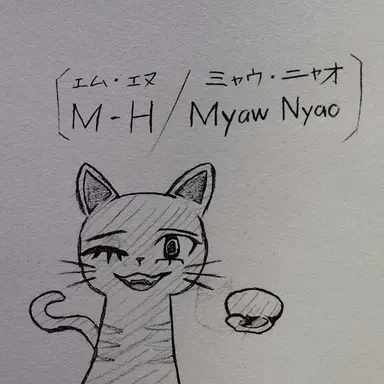 [エム・エヌ / ミャウ・ニャオ]
[M-H / Myaw Nyao]